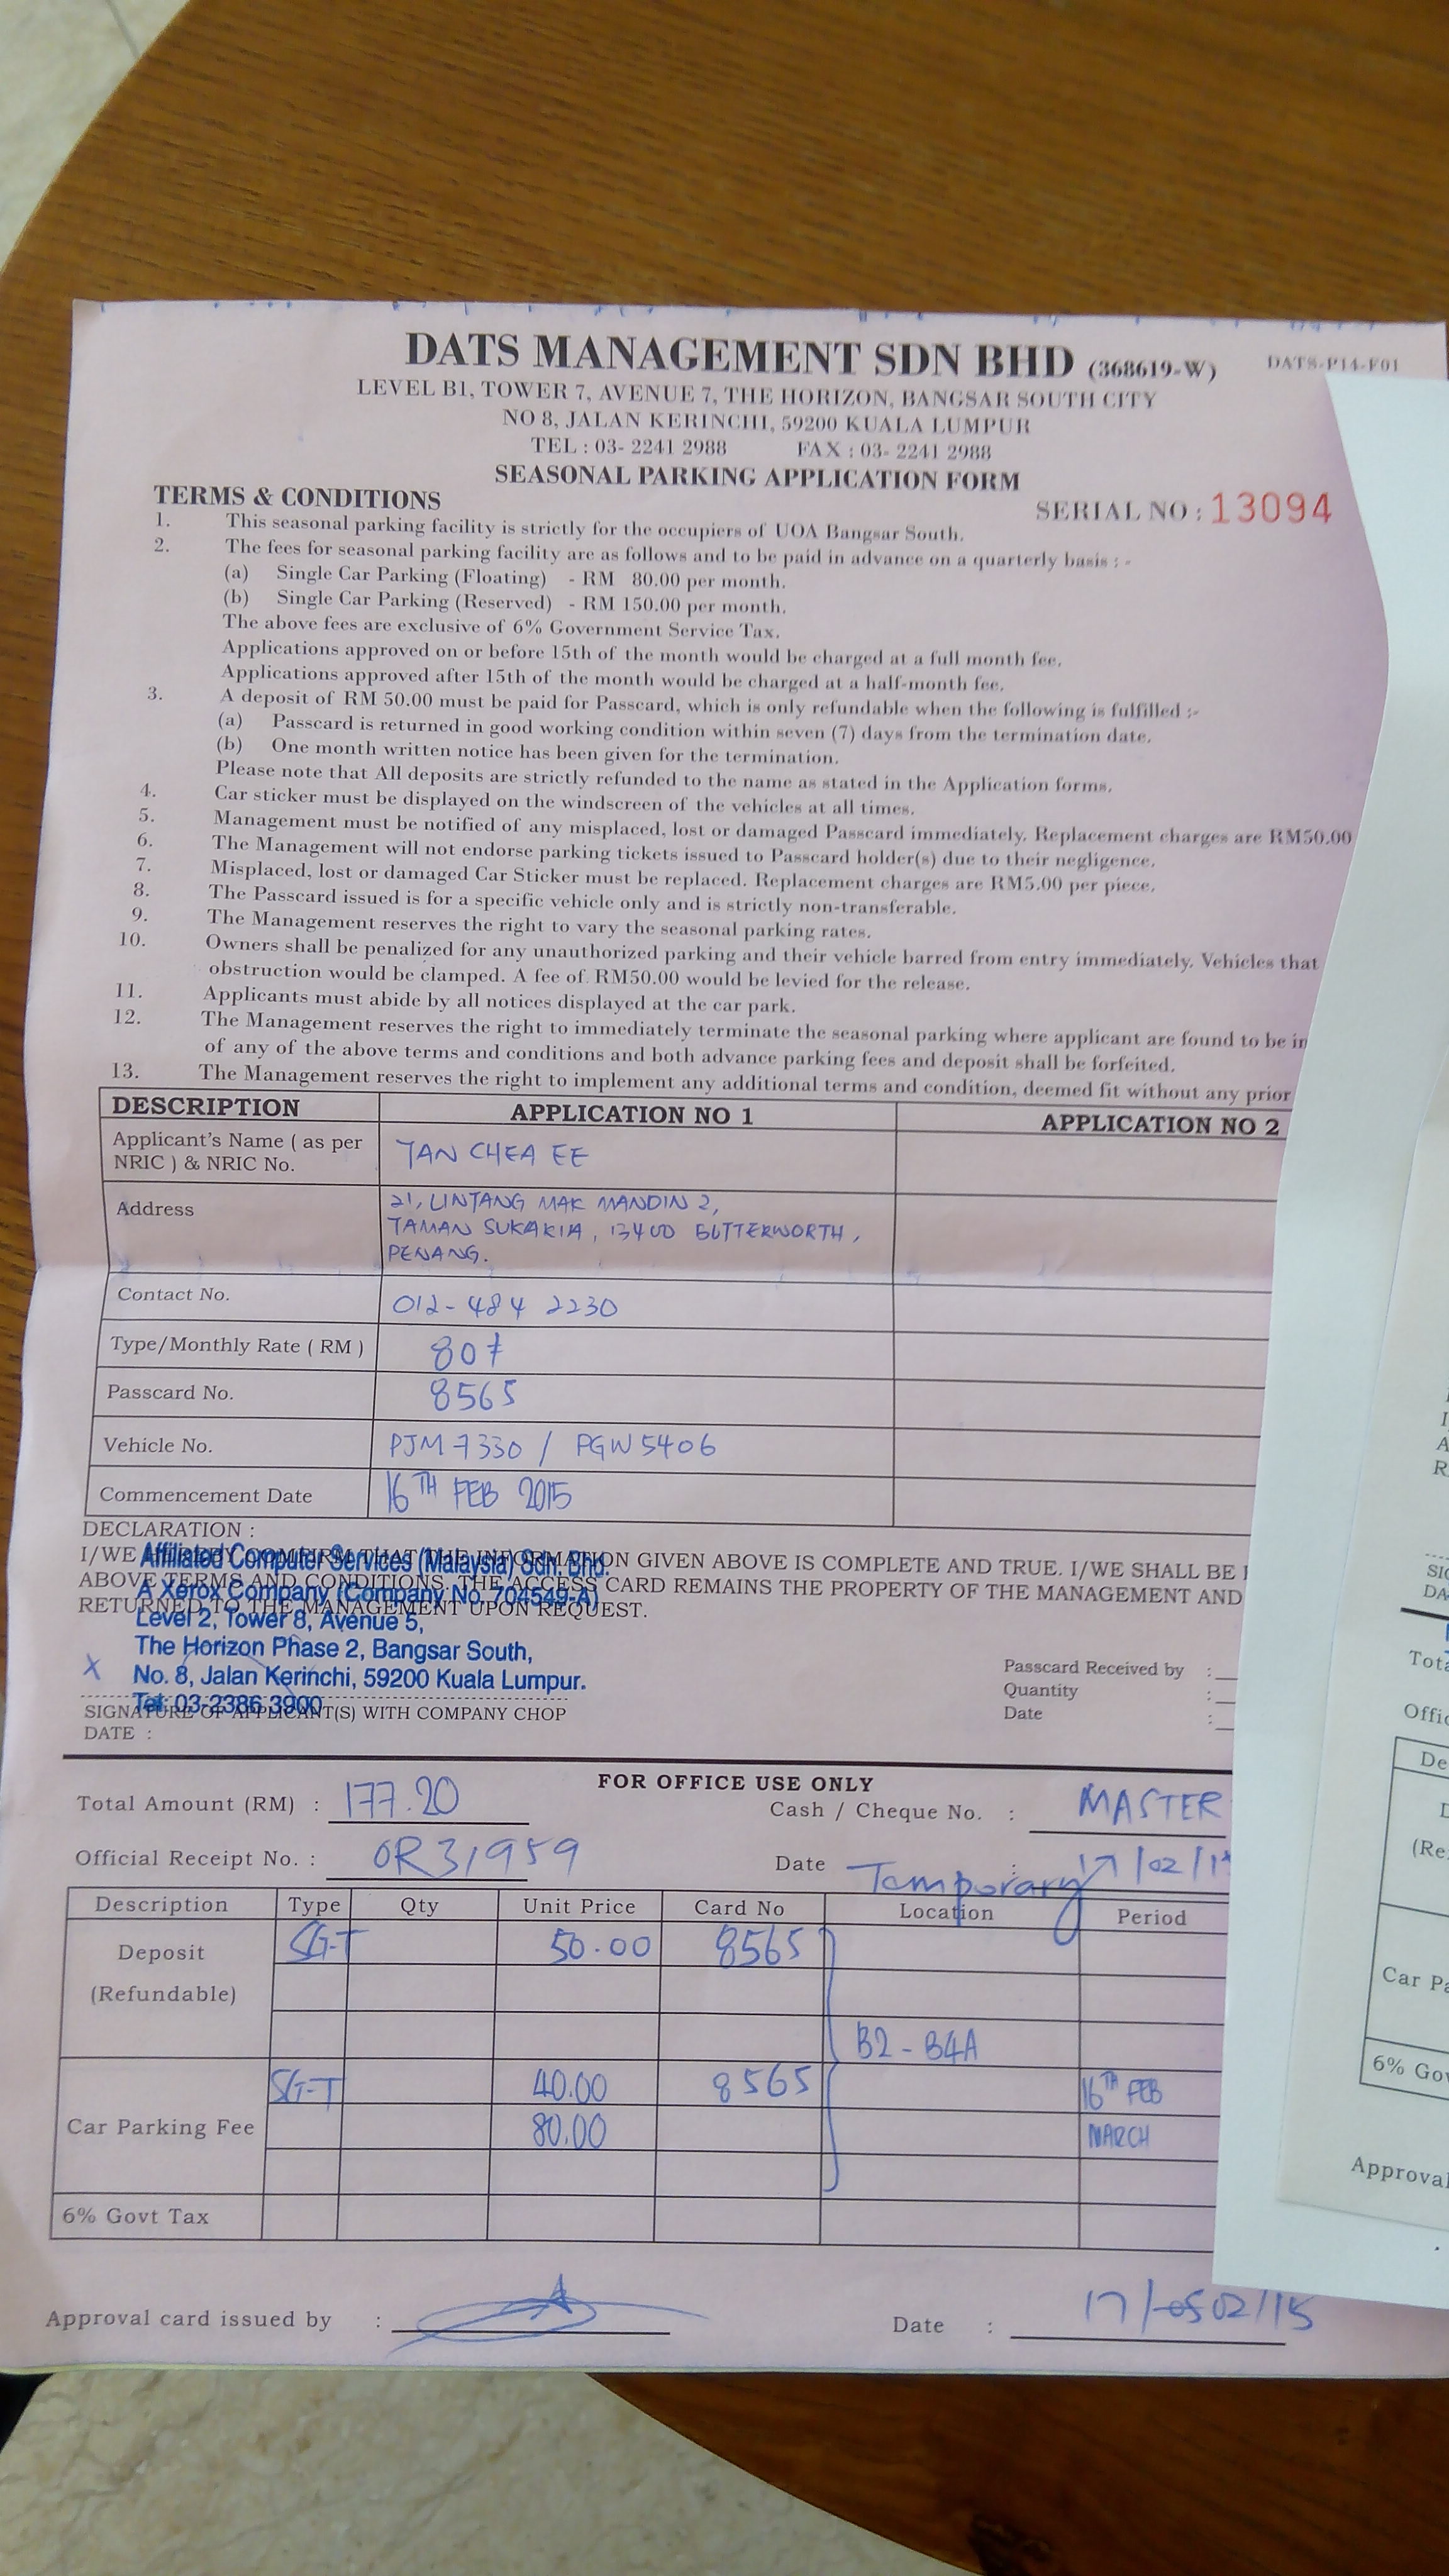 DATS MANAGEMENT SDN BHD (368619-W)
DATS-P14-F01
LEVEL B1, TOWER 7, AVENUE 7, THE HORIZON, BANGSAR SOUTH CITY
NO 8, JALAN KERINCHI, 59200 KUALA LUMPUR
TEL : 03- 2241 2988 FAX : 03- 2241 2988
SEASONAL PARKING APPLICATION FORM
SERIAL NO : 13094
TERMS & CONDITIONS
1. This seasonal parking facility is strictly for the occupiers of UOA Bangsar South.
2. The fees for seasonal parking facility are as follows and to be paid in advance on a quarterly basis : -
(a) Single Car Parking (Floating) - RM 80.00 per month.
(b) Single Car Parking (Reserved) - RM 150.00 per month.
The above fees are exclusive of 6% Government Service Tax.
Applications approved on or before 15th of the month would be charged at a full month fee.
Applications approved after 15th of the month would be charged at a half-month fee.
3. A deposit of RM 50.00 must be paid for Passcard, which is only refundable when the following is fulfilled :-
(a) Passcard is returned in good working condition within seven (7) days from the termination date.
(b) One month written notice has been given for the termination.
Please note that All deposits are strictly refunded to the name as stated in the Application forms.
4. Car sticker must be displayed on the windscreen of the vehicles at all times.
5. Management must be notified of any misplaced, lost or damaged Passcard immediately. Replacement charges are RM50.00
6. The Management will not endorse parking tickets issued to Passcard holder(s) due to their negligence.
7. Misplaced, lost or damaged Car Sticker must be replaced. Replacement charges are RM5.00 per piece.
8. The Passcard issued is for a specific vehicle only and is strictly non-transferable.
9. The Management reserves the right to vary the seasonal parking rates.
10. Owners shall be penalized for any unauthorized parking and their vehicle barred from entry immediately. Vehicles that
obstruction would be clamped. A fee of RM50.00 would be levied for the release.
11. Applicants must abide by all notices displayed at the car park.
12. The Management reserves the right to immediately terminate the seasonal parking where applicant are found to be in
of any of the above terms and conditions and both advance parking fees and deposit shall be forfeited.
13. The Management reserves the right to implement any additional terms and condition, deemed fit without any prior
DESCRIPTION APPLICATION NO 1 APPLICATION NO 2
Applicant's Name ( as per
NRIC ) & NRIC No. TAN CHEA EE
Address 21, LINTANG MAK MANDIN 2,
TAMAN SUKARIA, 13400 BUTTERWORTH,
PENANG.
Contact No. 012-484 2230
Type/Monthly Rate ( RM ) 80
Passcard No. 8565
Vehicle No. PJM 7330 / PGW 5406
Commencement Date 16TH FEB 2015
DECLARATION :
I/WE HEREBY CONFIRM THAT THE INFORMATION GIVEN ABOVE IS COMPLETE AND TRUE. I/WE SHALL BE
ABOVE TERMS AND CONDITIONS. THE ACCESS CARD REMAINS THE PROPERTY OF THE MANAGEMENT AND
RETURNED TO THE MANAGEMENT UPON REQUEST.
Affiliated Computer Services (Malaysia) Sdn. Bhd.
A Xerox Company (Company No. 704549-A)
Level 2, Tower 8, Avenue 5,
The Horizon Phase 2, Bangsar South,
X No. 8, Jalan Kerinchi, 59200 Kuala Lumpur.
Tel: 03-2386 3900
SIGNATURE OF APPLICANT(S) WITH COMPANY CHOP
DATE :
Passcard Received by :
Quantity :
Date :
FOR OFFICE USE ONLY
Total Amount (RM) : 177.20 Cash / Cheque No. : MASTER
Official Receipt No. : OR31959 Date : 17/02/1
Temporary
Description Type Qty Unit Price Card No Location Period
Deposit SG-T 50.00 8565
(Refundable)
B2 - B4A
SG-T 40.00 8565 16TH FEB
Car Parking Fee 80.00 MARCH
6% Govt Tax
Approval card issued by : Date : 17/02/15
SIG
DA
Tota
Offic
De
(Re
Car Pa
6% Gov
Approval